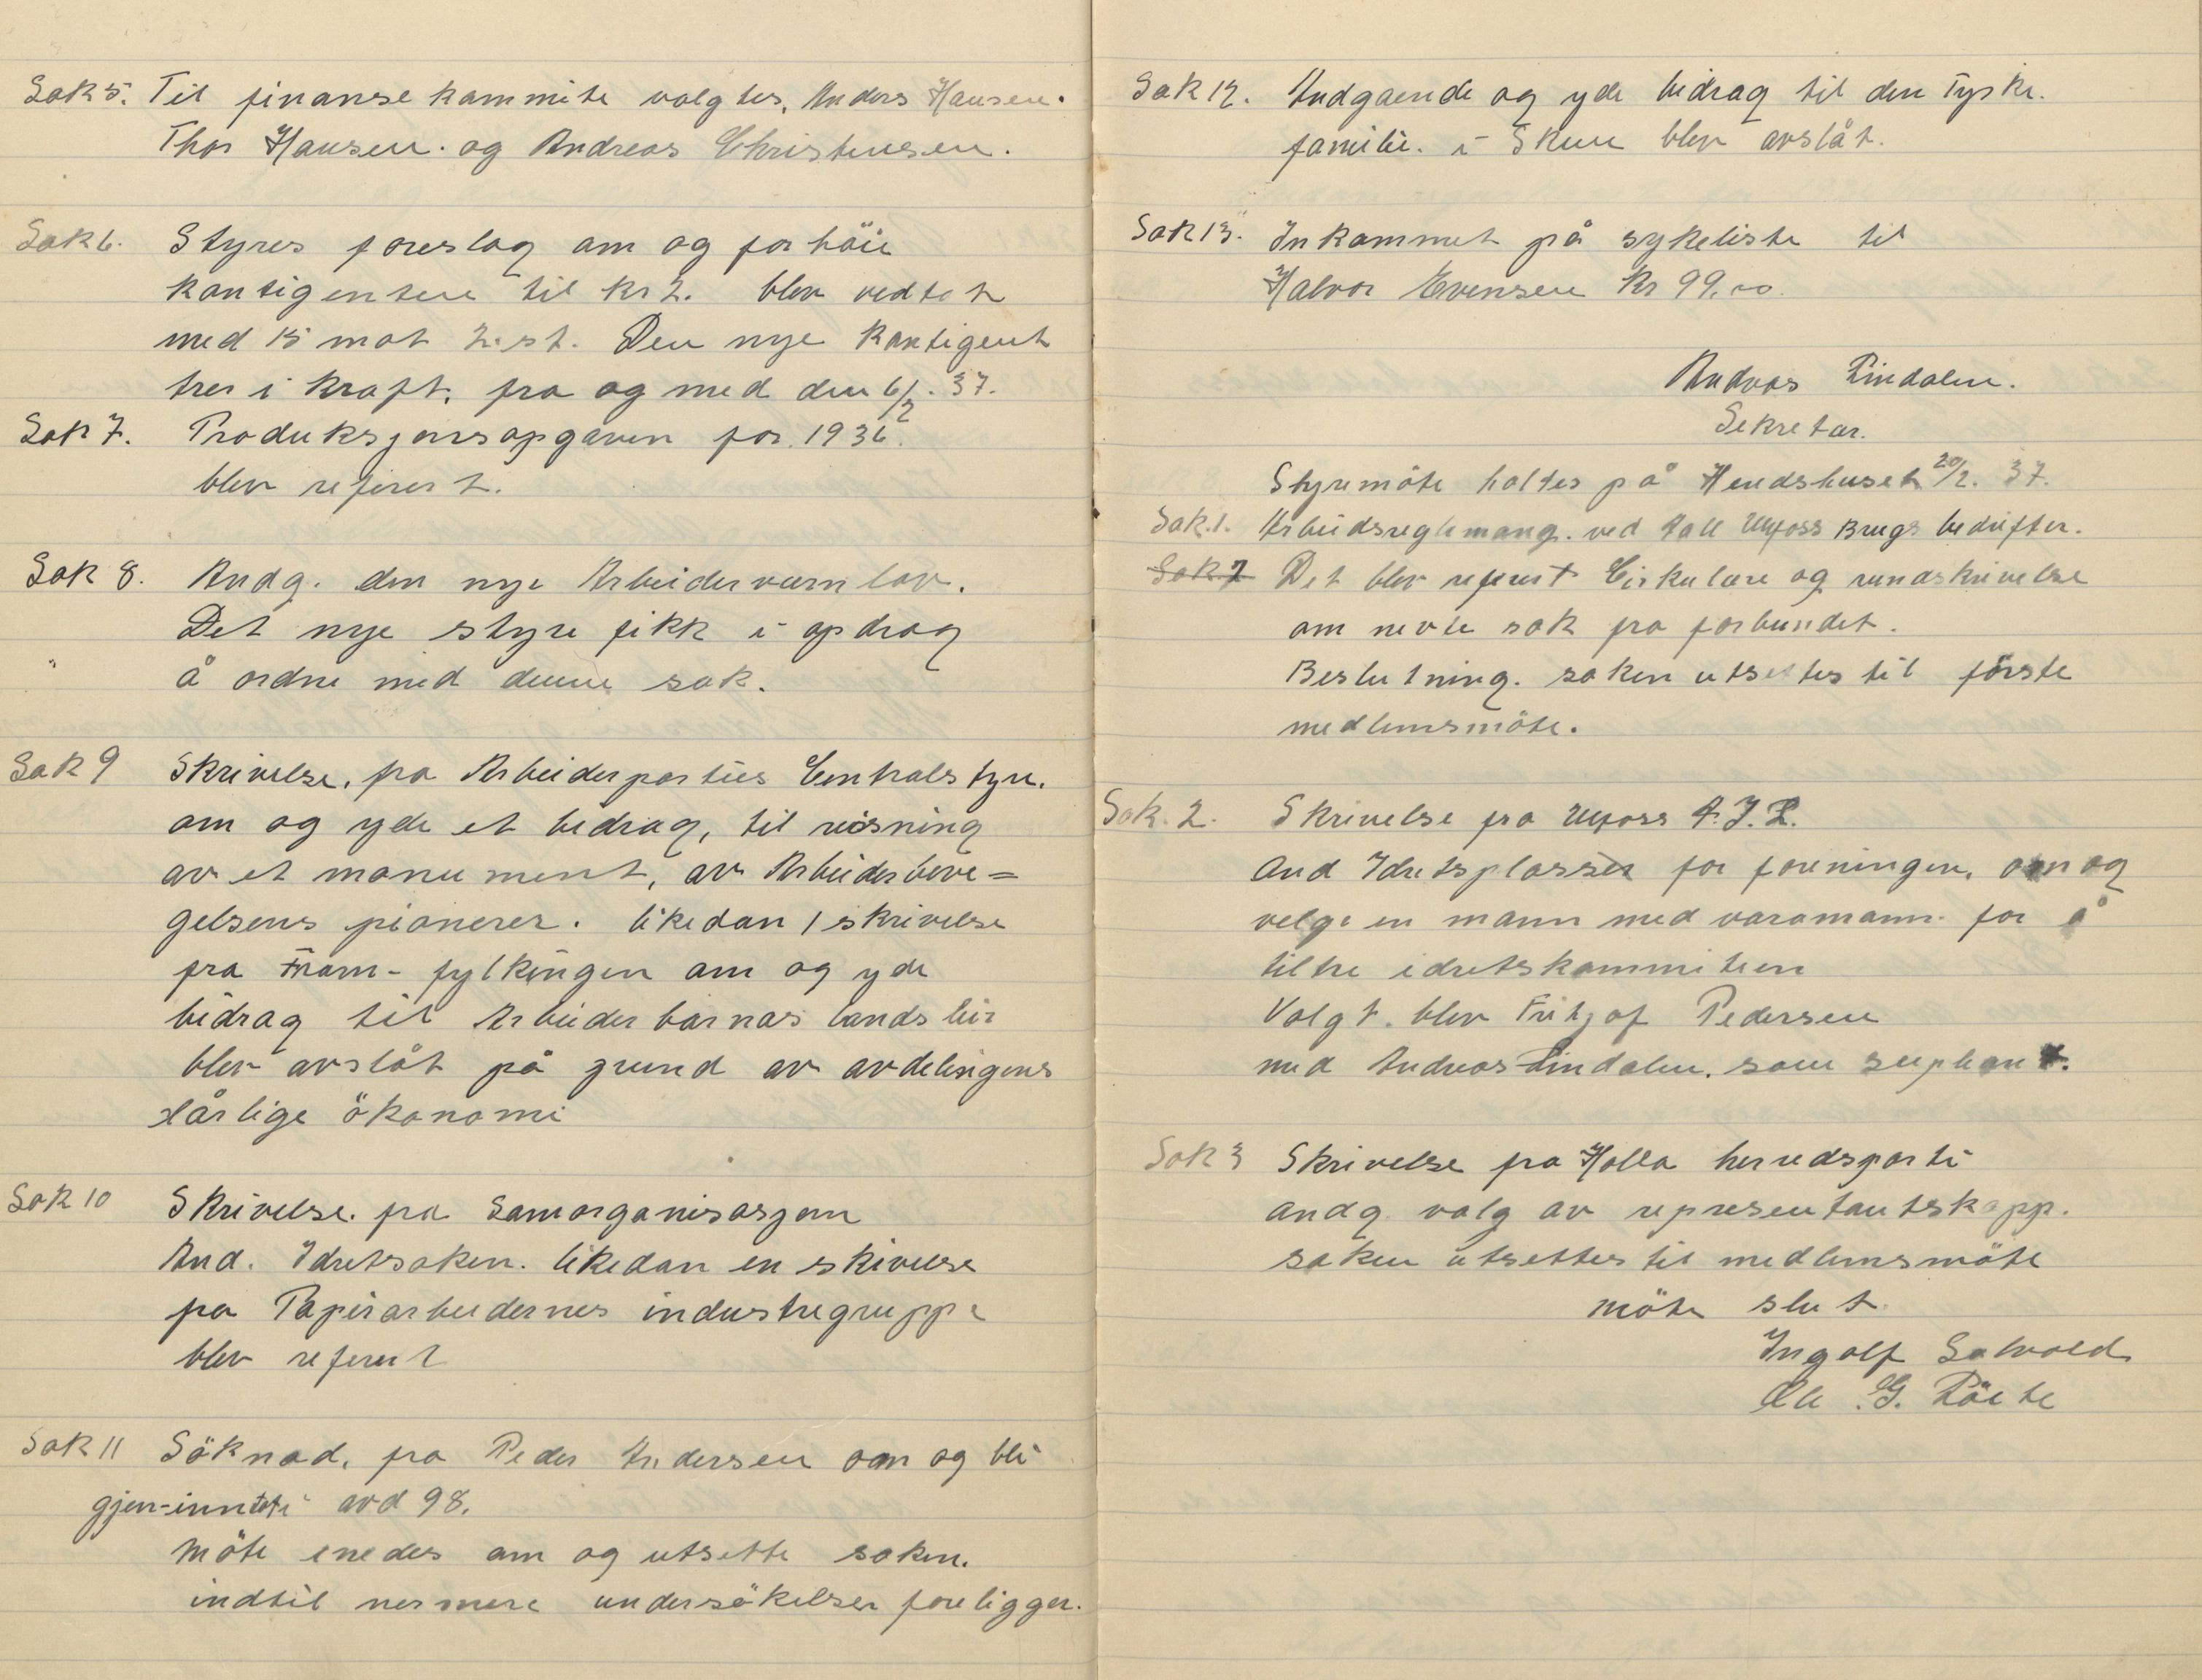 Sak 5. Til finanse kammite valgtes, Anders Hansen.
Thor Hansen. og Andreas Christensen.
Sak 6. Styres foreslag om og forhöie
kontigenten til kr 2. blev vedtat
med 15 mot 2. st. Den nye Kontigent
trer i kraft, fra og med den 6/2. 37.
Sak 7. Produksjonsopgaven for 1936.
blev referert.
Sak 8. Andg. den nye Arbeidervernlov.
Det nye styre fikk i opdrag
å ordne med denne sak.
Sak 9 Skrivelse, fra Arbeiderparties Centralstyre.
om og yde et bidrag, til reisning
av et monument, av Arbeiderbeve=
gelsens pionerer. likedan 1 skrivelse
fra Fram-fylkingen om og yde
bidrag til Arbeiderbarnas landsleir
blev avslåt på grund av avdelingens
dårlige ökonomi
Sak 10 Skrivelse. fra Samorganisasjonen
And. Idretsaken. likedan en skivelse
fra Papirarbeidernes industregruppe
blev referert
Sak 11 Söknad, fra Peder Andersen om og bli
gjen-inntat i avd 98.
Möte enedes om og utsette saken.
indtil nermere undersökelser foreligger.
Sak 12. Andgaende og yde bidrag til den Tyske.
familie. i Skien blev avslåt.
Sak 13. Inkommet på sykeliste til
Halvor Evensen Kr 99.00.
Andreas Lindalen.
Sekretær.
Styremöte holtes på Herredshuset 20/2. 37.
Sak. 1. Arbeidsreglemang. ved Ulefoss Brugs bedrifter.
Sak 2 Det blev referert Cirkulære og rundskrivelse
om nevte sak fra forbundet.
Beslutning. saken utsettes til förste
medlemsmöte.
Sak. 2. Skrivelse fra Ulefoss A.I.L.
And Idretsplasser for foreningen, om og
velge en mann med varamann. for å
tiltre idretskommiteen
Valgt. blev Fritjof Pedersen
med Andreas Lindalen. som supleant.
Sak 3 Skrivelse fra Holla herredsparti
andg. valg av representantskapp.
saken utsettes til medlemsmöte
möte slut.
Ingolf Solvold
Ole .G.